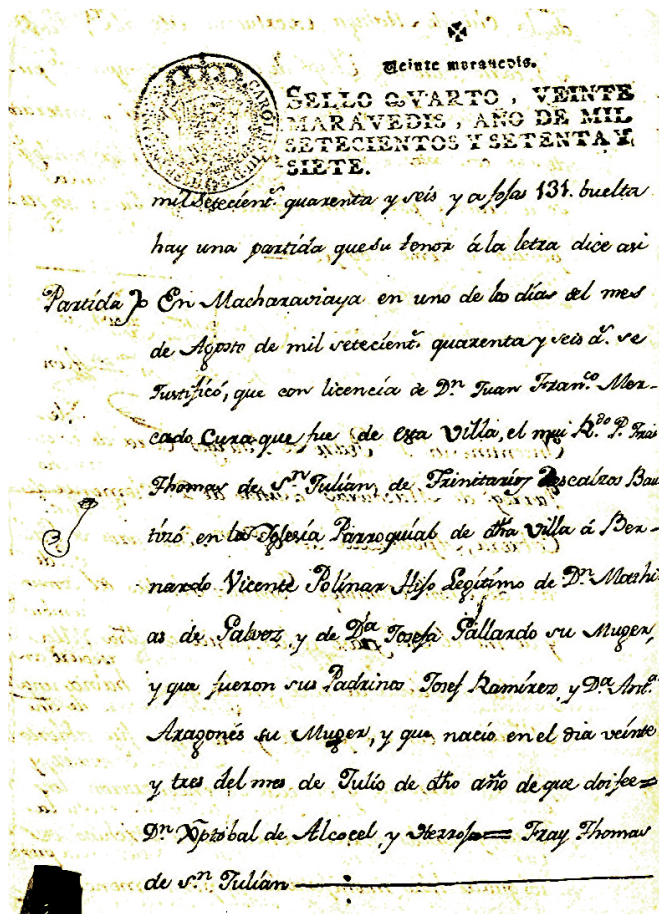 Veinte maravedis.
SELLO QVARTO, VEINTE
MARAVEDIS, AÑO DE MIL
SETECIENTOS Y SETENTA Y
SIETE.
mil setecient.s quarenta y seis y a fojas 131. buelta
hay una partida que su tenor á la letra dice asi
Partida En Macharaviaya en uno de los días del mes
de Agosto de mil setecient.s quarenta y seis a.s se
Justificó, que con licencia de D.n Juan Fran.co Mer-
cado Cura que fue de esta Villa, el mui R.do P. Frai
Thomas de S.n Julián, de Trinitarios Descalzos Bau
tizó en la Iglesia Parroquial de dha Villa á Ber-
nardo Vicente Polinar Hijo Legítimo de D.n Mathi
as de Galvez, y de D.a Josefa Gallardo su Muger,
y que fueron sus Padrinos Josef Ramírez, y D.a Ant.a
Aragonés su Muger, y que nació en el dia veinte
y tres del mes de Julio de dho año de que doi fee=
D.n Xptobal de Alcocel, y = Fray Thomas
de S.n Julián